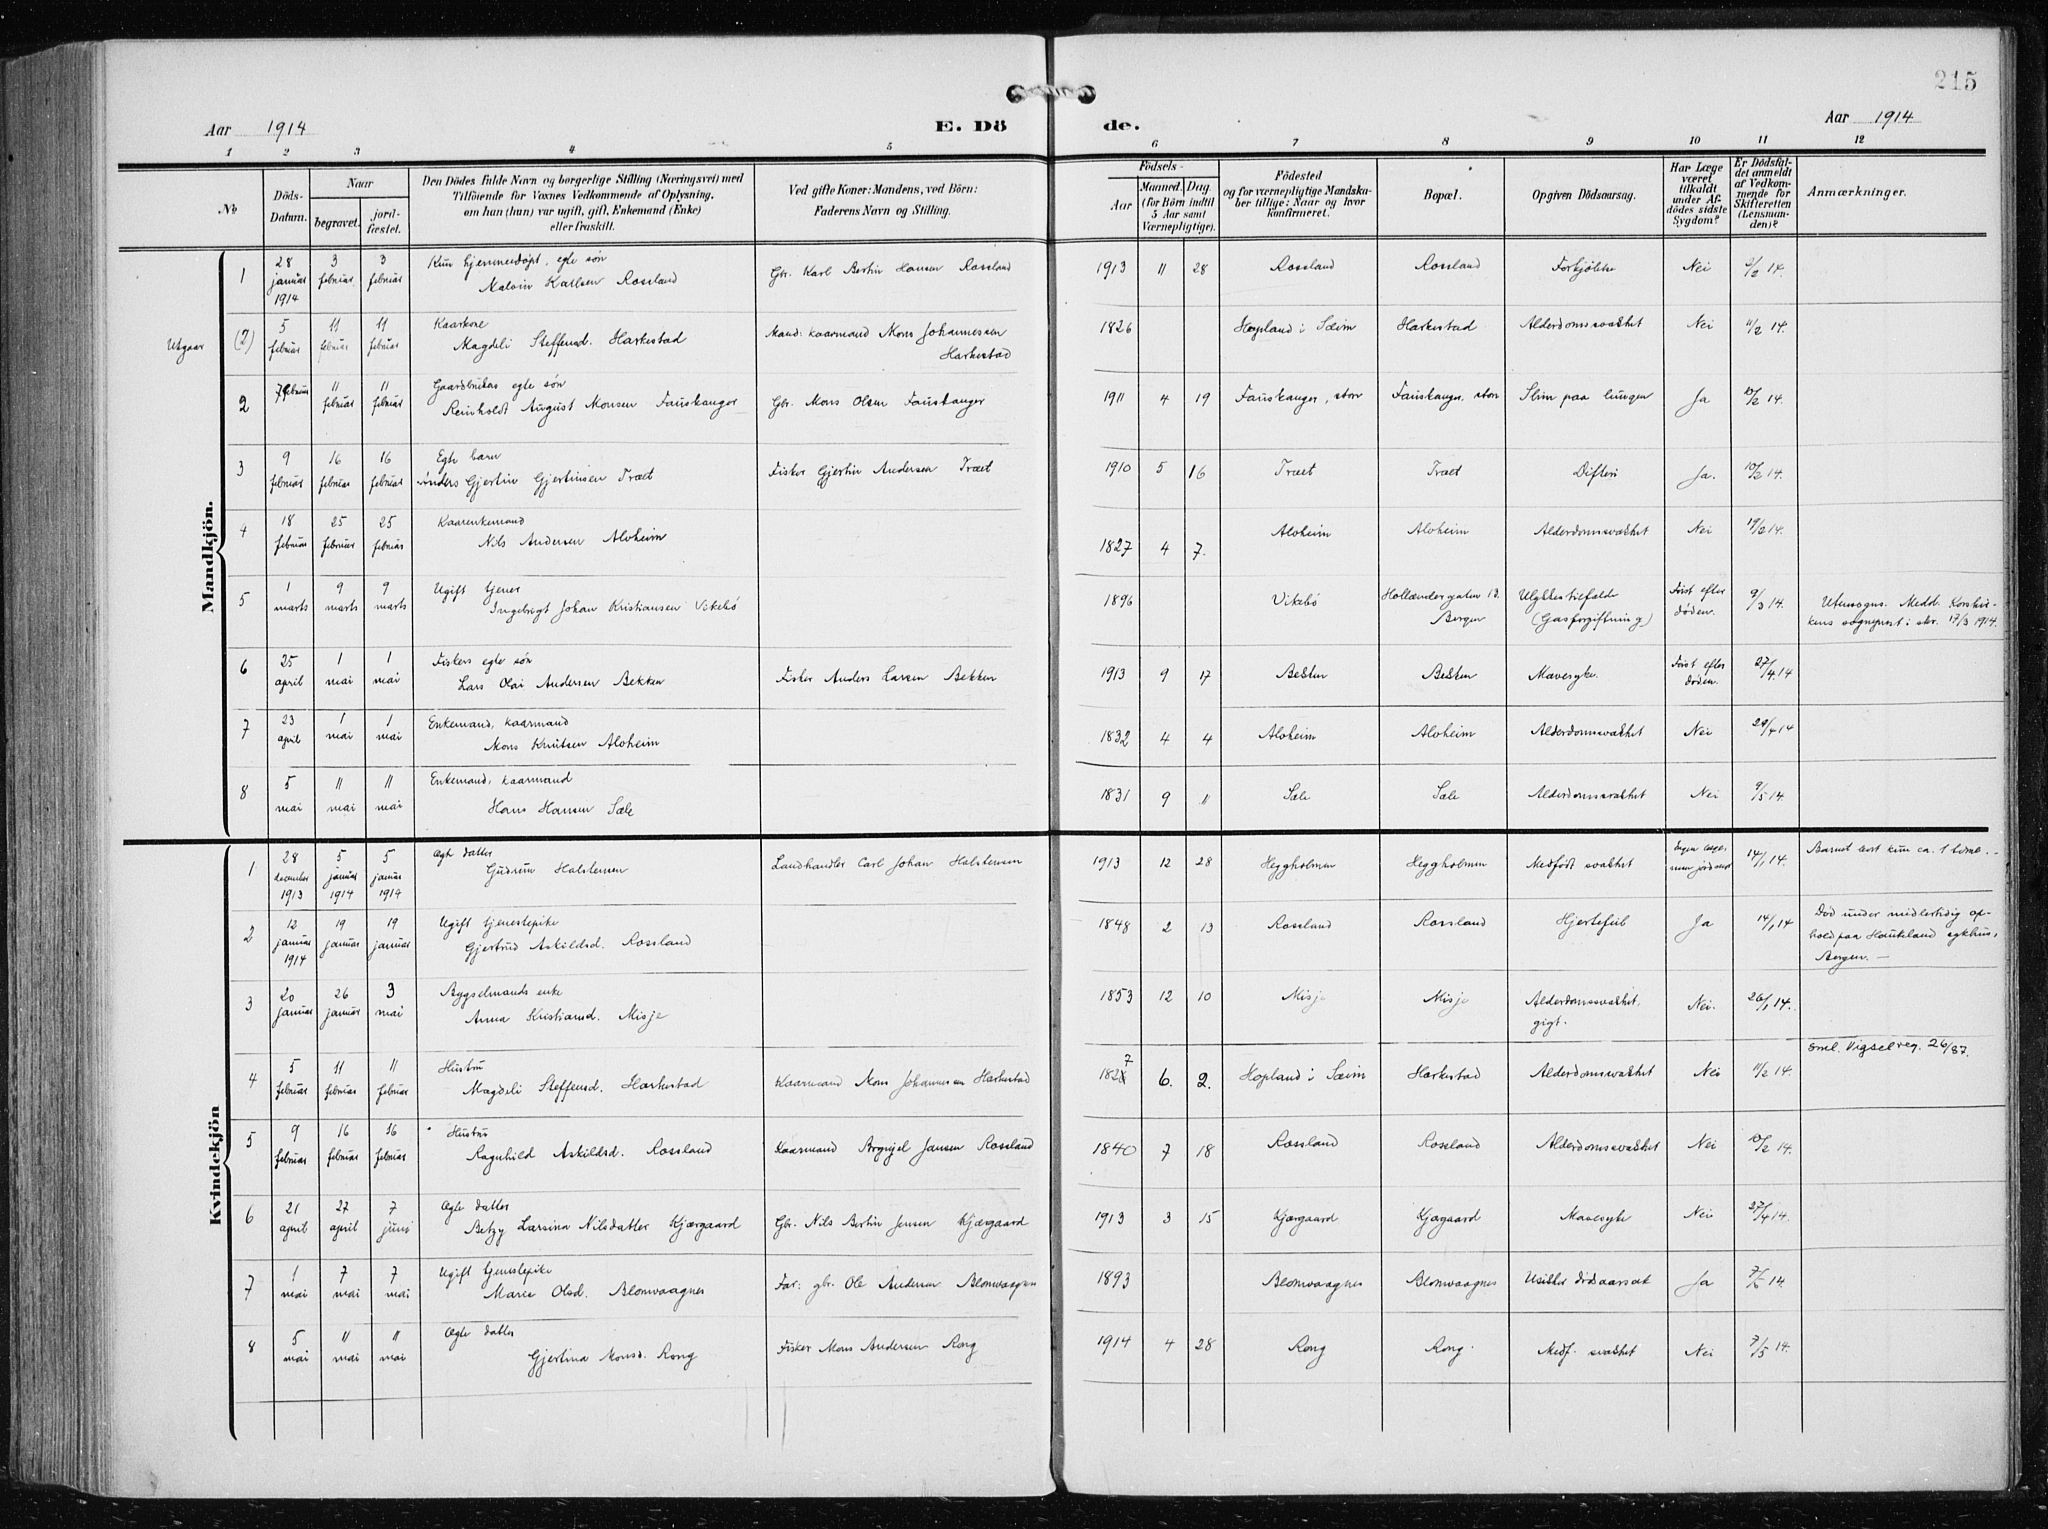 215
Aar 1914
E. Dö de.
Aar 1914
1 2 3 4 5 6 7 8 9 10 11 12
No
Döds-Datum.
Naar
begravet.
jord-fæstet.
Den Dödes fulde Navn og borgerlige Stilling (Næringsvei) med
Tilföiende for Voxnes Vedkommende af Oplysning,
om han (hun) var ugift, gift, Enkemand (Enke)
eller fraskilt.
Ved gifte Koner: Mandens, ved Börn:
Faderens Navn og Stilling.
Födsels-
Aar
Maaned. Dag.
(for Börn indtil
5 Aar samt
Værnepligtige).
Födested
og for værnepligtige Mandska-
ber tillige: Naar og hvor
konfirmeret.
Bopæl.
Opgiven Dödsaarsag.
Har Læge
været
tilkaldt
under Af-
dödes sidste
Sygdom?
Er Dödsfal-
det anmeldt
af Vedkom-
mende for
Skifteretten
(Lensman-
den)?
Anmærkninger.
Mandkjön.
1 28 januar 1914 3 februar 3 februar Kun hjemmedöpt, egte sön
Malvin Karlsen Rossland Gbr. Karl Bertin Hansen Rossland 1913 11 28 Rossland Rossland Forkjölelse Nei 2/2 14.
Utgaar (2) 5 februar 11 februar 11 februar Kaarkone
Magdeli Steffensd. Harkestad Mand: kaarmand Mons Johannessen
Harkestad 1826 Hopland i Sæim Harkestad Alderdomssvakhet Nei 11/2 14.
2 7 februar 11 februar 11 februar Gaardbrukers egte sön
Reinholdt August Monsen Fauskanger Gbr. Mons Olsen Fauskanger 1911 4 19 Fauskanger, store Fauskanger, store Slim paa lungen Ja 10/2 14.
3 9 februar 16 februar 16 februar Egte barn
Anders Gjertin Gjertinsen Træet Fisker Gjertin Andersen Træet 1910 5 16 Træet Træet Difteri Ja. 10/2 14.
4 18 februar 25 februar 25 februar Kaarenkemand
Nils Andersen Alvheim 1827 4 7. Alvheim Alvheim Alderdomssvakhet Nei 19/2 14.
5 1 marts 9 marts 9 marts Ugift tjener
Ingebrigt Johan Kristiansen Vikebö 1896 Vikebö Hollændergaten 13. Bergen Ulykkestilfælde
(Gasforgiftning) Först efter döden. 9/3 14. Utensogns. Medd. Korskir-
kens sogneprest i skr. 17/3 1914.
6 25 april 1 mai 1 mai Fiskers egte sön
Lars Olai Andersen Bekken Fisker Anders Larsen Bekken 1913 9 17 Bekken Bekken Mavesyke. Först efter döden. 27/4 14
7 23 april 1 mai 1 mai Enkemand, kaarmand
Mons Knutsen Alvheim 1832 4 4 Alvheim Alvheim Alderdomssvakhet Nei 29/4 14
8 5 mai 11 mai 11 mai Enkemand, kaarmand
Hans Hansen Sæle 1831 9 11 Sæle Sæle Alderdomssvakhet Nei 9/5 14.
Kvindekjön
1 28 december 1913 5 januar 1914 5 januar 1914 Ægte datter
Gudrun Halstensen Landhandler Carl Johan Halstensen 1913 12 28 Heggholmen Heggholmen Medfödt svakhet 14/1 14. Barnet levet kun ca. 1 time. -
2 12 januar 1914 19 januar 19 januar Ugift tjenestepike
Gjertrud Askildsd. Rossland 1848 2 13 Rossland Rossland Hjertefeil Ja 14/1 14 Död under midlertidig op-
hold paa Haukeland sykhus,
Bergen. -
3 20 januar 26 januar 3 mai Bygselmands enke
Anna Kristiansd. Misje 1853 12 10 Misje Misje Alderdomssvakhet,
gigt. Nei. 26/1 14.
4 5 februar 11 februar 11 februar Hustru
Magdeli Steffensd. Harkestad Kaarmand Mons Johannessen Harkestad 1827 6. 2. Hopland i Sæim Harkestad Alderdomssvakhet Nei 11/2 14. Sml. Vigselreg. 26/87.
5 9 februar 16 februar 16 februar Hustru
Ragnhild Askildsd. Rossland Kaarmand Brynjel Jansen Rossland 1840 7 18 Rossland Rossland Alderdomssvakhet Nei 10/2 14.
6 21 april 27 april 7 juni Ægte datter
Betzy Larsina Nilsdatter Kjærgaard Gbr. Nils Bertin Jensen Kjærgaard 1913 3 15 Kjærgaard Kjærgaard Mavesyke Nei 27/4 14.
7 1 mai 7 mai 7 mai Ugift tjenestepike
Marie Olsd. Blomvaagnes Far: gbr. Ole Andersen Blomvaagnes 1893 Blomvaagnes Blomvaagnes Usikker dödsaarsak Ja 7/5 14.
8 5 mai 11 mai 11 mai Ægte datter
Gjertina Monsd. Rong Fisker Mons Andersen Rong 1914 4 28 Rong Rong. Medf. svakhet Nei 7/5 14.